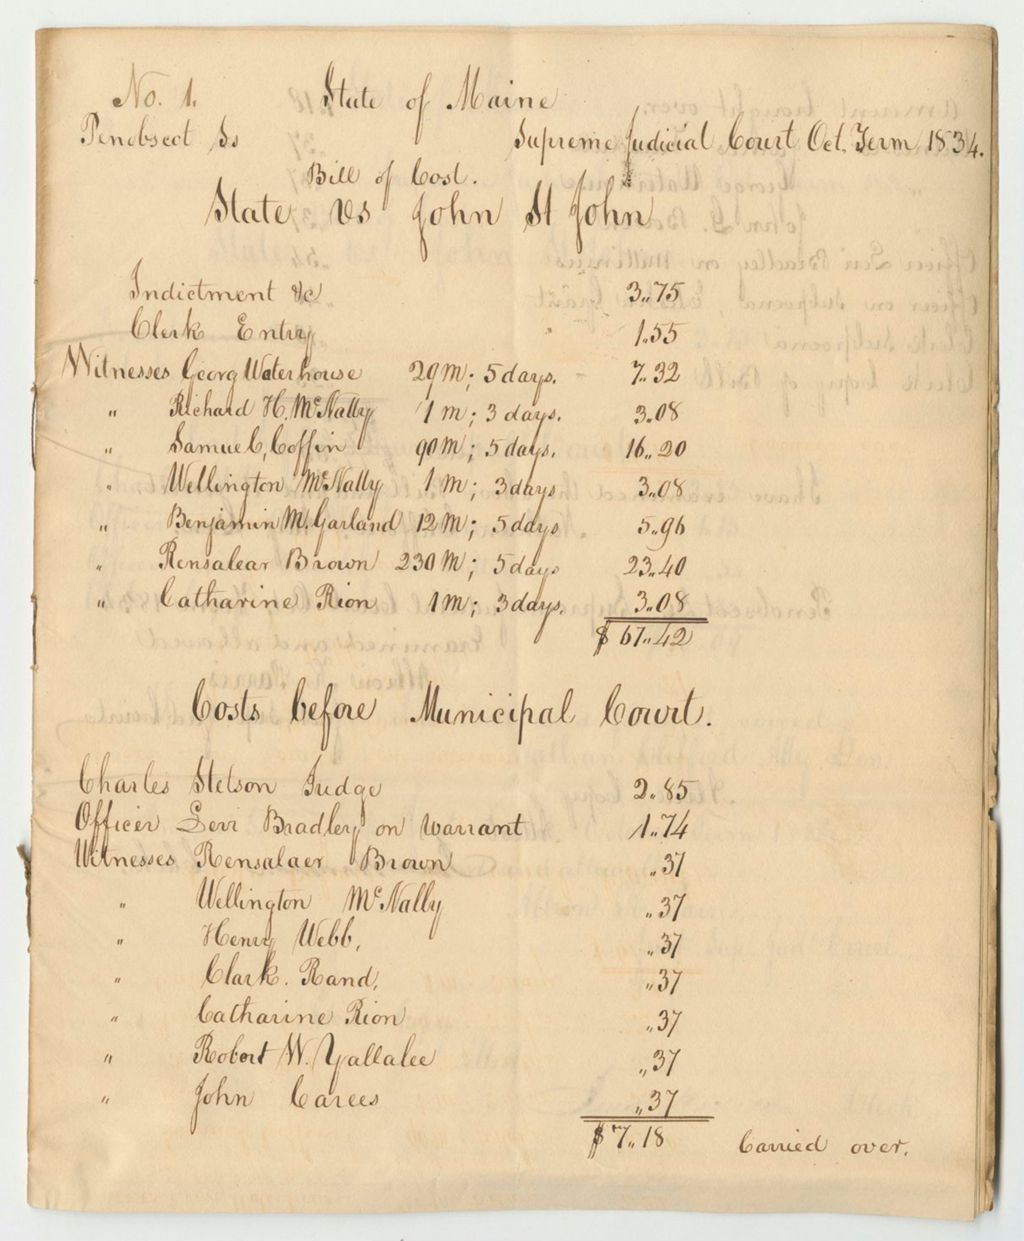 No. 1. State of Maine
Penobscot Ss Supreme Judicial Court Oct. Term 1834.
Bill of Cost.
State vs John St John
Indictment &c 3..75
Clerk Entry 1.55
Witnesses Georg Waterhouse 29 M; 5 days. 7..32
" Richard H. McNally 1 m; 3 days. 3..08
" Samuel, Coffin 90 M; 5 days. 16..20
" Wellington McNally 1 M; 3 days 3..08
" Benjamin M. Garland 12 M; 5 days 5..96
" Rensalear Brown 230 M; 5 days 23..40
" Catharine Rion 1 M; 3 days. 3..08
$ 67..42
Costs before Municipal Court.
Charles Stetson Judge 2..85
Officer Levi Bradley on warrant 1..74
Witnesses Rensalaer Brown ..37
" Wellington McNally ..37
" Henry Webb, ..37
" Clark. Rand, ..37
" Catharine Rion ..37
" Robert W. Yallalee ..37
" John Carees ..37
$ 7..18 Carried over.